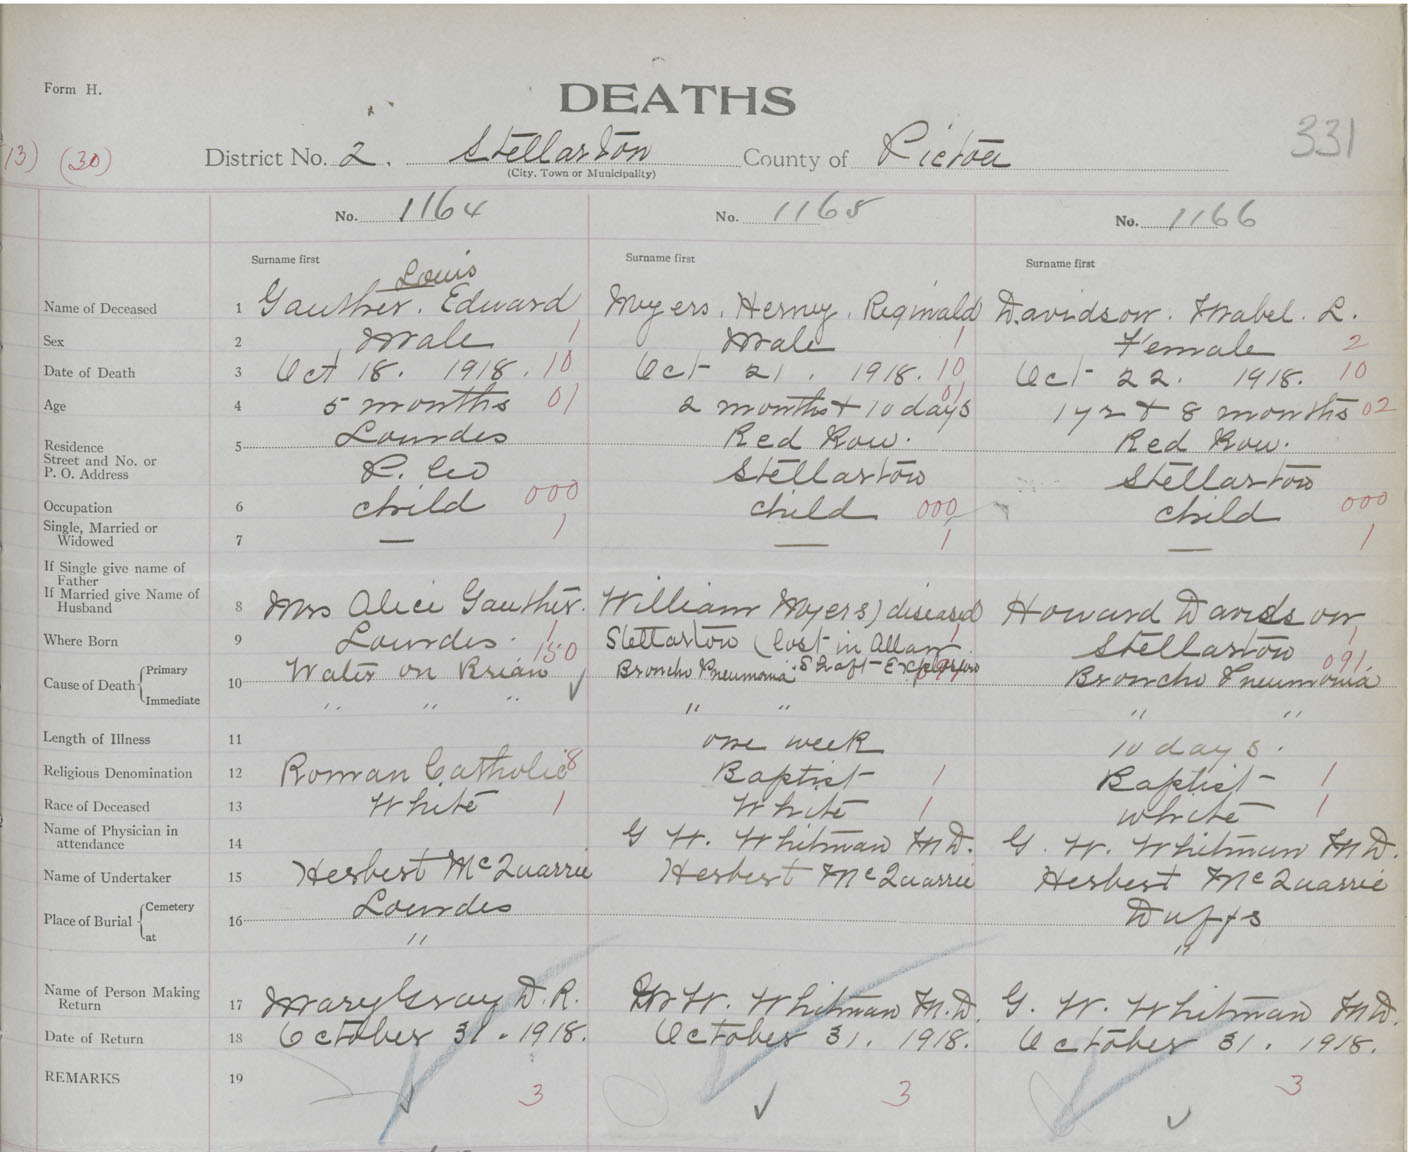 Form H.
DEATHS
331
13) (30) District No. 2. Stellarton County of Pictou
(City, Town or Municipality)
No. 1164 No. 1165 No. 1166
Surname first Surname first Surname first
Louis
Name of Deceased 1 Gauther. Edward Myers. Henry. Reginald Davidson. Mabel. L.
Sex 2 Male 1 Male 1 Female 2
Date of Death 3 Oct 18. 1918. 10 Oct 21. 1918. 10 Oct 22. 1918. 10
Age 4 5 months 01 2 months + 10 days 01 1 yr + 8 months 02
Residence 5 Lourdes Red Row. Red Row.
Street and No. or
P. O. Address P. Co Stellarton Stellarton
Occupation 6 child 000 child 000 child 000
Single, Married or
Widowed 7 — 1 — 1 — 1
If Single give name of
Father
If Married give Name of
Husband 8 Mrs Alice Gauther. William Myers) diseased Howard Davidson
Where Born 9 Lourdes. 1 Stellarton (lost in Allan 1 Stellarton 1
Cause of Death { Primary 10 Water on Brian 150 Broncho Pneumonia Shaft Explosion Broncho Pneumonia 091
Immediate " " " " " " "
Length of Illness 11 one week 10 days.
Religious Denomination 12 Roman Catholic 8 Baptist 1 Baptist 1
Race of Deceased 13 White 1 White 1 White 1
Name of Physician in
attendance 14 G W. Whitman M.D. G. W. Whitman M.D.
Name of Undertaker 15 Herbert McQuarrie Herbert McQuarrie Herbert McQuarrie
Place of Burial { Cemetery 16 Lourdes Duffs
at " "
Name of Person Making
Return 17 Mary Gray D.R. W. Whitman M.D. G. W. Whitman M.D.
Date of Return 18 October 31. 1918. October 31. 1918. October 31. 1918.
REMARKS 19 3 3 3